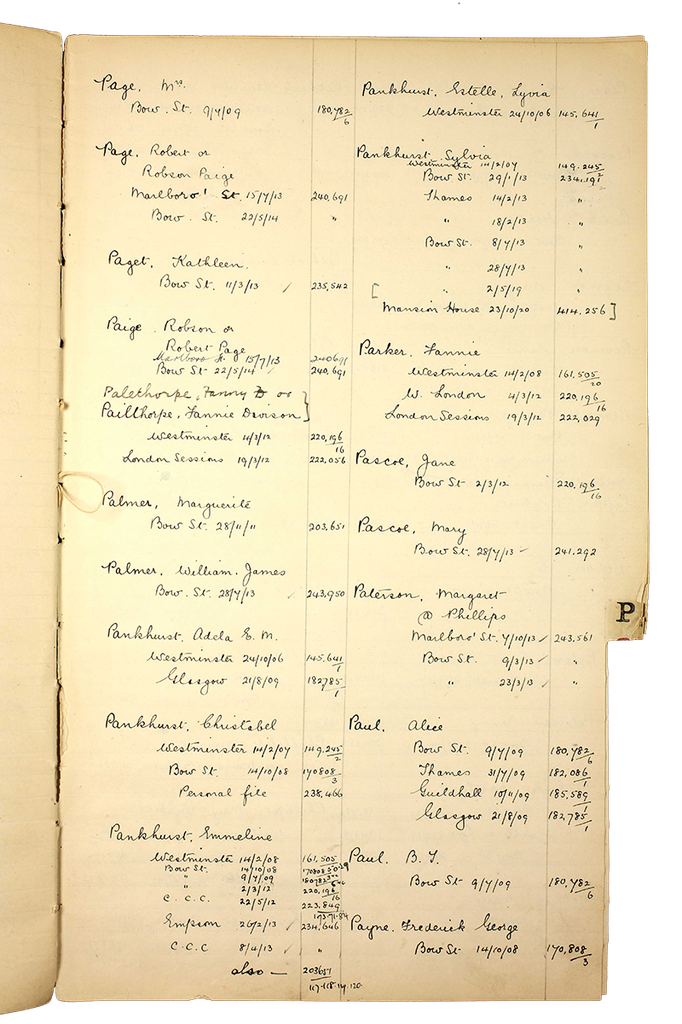 Page, Mrs.
Bow. St. 9/7/09 180,782/6
Page, Robert or
Robson Paige
Marlboro' St. 15/7/13 240,691
Bow. St. 22/5/14 "
Paget, Kathleen.
Bow St. 11/3/13 ✓ 235,542
Paige, Robson or
Robert Page
Marlboro St. 15/7/13 240691
Bow St. 22/5/14 ✓ 240,691
Palethorpe, Fanny D or
Pailthorpe, Fannie Davison
Westminster 4/3/12 220,196/16
London Sessions 19/3/12 222,056
Palmer, Marguerite
Bow St. 28/11/11 203,651
Palmer, William James
Bow. St. 28/7/13 ✓ 243,950
Pankhurst, Adela E. M.
Westminster 24/10/06 145,641/1
Glasgow 21/8/09 182785/1
Pankhurst, Christabel
Westminster 14/2/07 149,245/2
Bow St. 14/10/08 170808/3
Personal file 238,466
Pankhurst, Emmeline
Westminster 14/2/08 161,505
Bow St. 14/10/08
" 9/7/09
" 2/3/12 220,196/16
C.C.C. 22/5/12 223,849
Epsom 26/2/13 ✓ 234,646
C.C.C 8/4/13 ✓ "
also — 203651
117-118-119-120
Pankhurst, Estelle, Lyvia
Westminster 24/10/06 145,641/1
Pankhurst, Sylvia
Westminster 14/2/07 149,245/2
Bow St. 29/1/13 234,191
Thames 14/2/13 "
" 18/2/13 "
Bow St. 8/7/13 "
" 28/7/13 "
[ " 2/5/19 "
Mansion House 23/10/20 414,256 ]
Parker, Fannie
Westminster 14/2/08 161,505/20
W. London 4/3/12 220,196/16
London Sessions 19/3/12 222,029
Pascoe, Jane
Bow St 2/3/12 220,196/16
Pascoe, Mary
Bow St. 28/7/13 ✓ 241,292
Paterson, Margaret
@ Phillips
Marlboro' St. 7/10/13 ✓ 243,561
Bow St. 9/3/13 ✓ "
" 23/3/13 ✓ "
P
Paul, Alice
Bow St. 9/7/09 180,782/6
Thames 31/7/09 182,086/1
Guildhall 10/11/09 185,589/1
Glasgow 21/8/09 182,785/1
Paul. B. T.
Bow St 9/7/09 180,782/6
Payne, Frederick George
Bow St 14/10/08 170,808/3